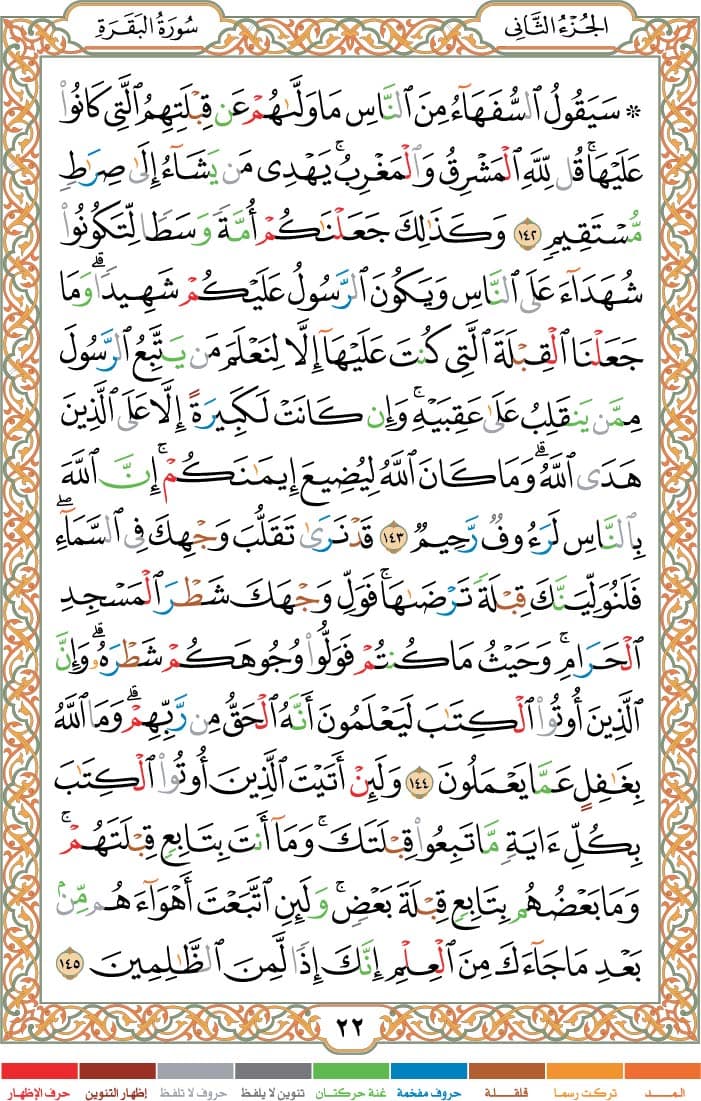 الجُزْءُ الثَّانِى
سُورَةُ البَقَرَةِ
۞ سَيَقُولُ ٱلسُّفَهَآءُ مِنَ ٱلنَّاسِ مَا وَلَّىٰهُمْ عَن قِبْلَتِهِمُ ٱلَّتِى كَانُوا۟
عَلَيْهَا ۚ قُل لِّلَّهِ ٱلْمَشْرِقُ وَٱلْمَغْرِبُ ۚ يَهْدِى مَن يَشَآءُ إِلَىٰ صِرَٰطٍ
مُّسْتَقِيمٍ ١٤٢ وَكَذَٰلِكَ جَعَلْنَٰكُمْ أُمَّةً وَسَطًا لِّتَكُونُوا۟
شُهَدَآءَ عَلَى ٱلنَّاسِ وَيَكُونَ ٱلرَّسُولُ عَلَيْكُمْ شَهِيدًا ۗ وَمَا
جَعَلْنَا ٱلْقِبْلَةَ ٱلَّتِى كُنتَ عَلَيْهَآ إِلَّا لِنَعْلَمَ مَن يَتَّبِعُ ٱلرَّسُولَ
مِمَّن يَنقَلِبُ عَلَىٰ عَقِبَيْهِ ۚ وَإِن كَانَتْ لَكَبِيرَةً إِلَّا عَلَى ٱلَّذِينَ
هَدَى ٱللَّهُ ۗ وَمَا كَانَ ٱللَّهُ لِيُضِيعَ إِيمَٰنَكُمْ ۚ إِنَّ ٱللَّهَ
بِٱلنَّاسِ لَرَءُوفٌ رَّحِيمٌ ١٤٣ قَدْ نَرَىٰ تَقَلُّبَ وَجْهِكَ فِى ٱلسَّمَآءِ ۖ
فَلَنُوَلِّيَنَّكَ قِبْلَةً تَرْضَىٰهَا ۚ فَوَلِّ وَجْهَكَ شَطْرَ ٱلْمَسْجِدِ
ٱلْحَرَامِ ۚ وَحَيْثُ مَا كُنتُمْ فَوَلُّوا۟ وُجُوهَكُمْ شَطْرَهُۥ ۗ وَإِنَّ
ٱلَّذِينَ أُوتُوا۟ ٱلْكِتَٰبَ لَيَعْلَمُونَ أَنَّهُ ٱلْحَقُّ مِن رَّبِّهِمْ ۗ وَمَا ٱللَّهُ
بِغَٰفِلٍ عَمَّا يَعْمَلُونَ ١٤٤ وَلَئِنْ أَتَيْتَ ٱلَّذِينَ أُوتُوا۟ ٱلْكِتَٰبَ
بِكُلِّ ءَايَةٍ مَّا تَبِعُوا۟ قِبْلَتَكَ ۚ وَمَآ أَنتَ بِتَابِعٍ قِبْلَتَهُمْ ۚ
وَمَا بَعْضُهُم بِتَابِعٍ قِبْلَةَ بَعْضٍ ۚ وَلَئِنِ ٱتَّبَعْتَ أَهْوَآءَهُم مِّنۢ
بَعْدِ مَا جَآءَكَ مِنَ ٱلْعِلْمِ ۙ إِنَّكَ إِذًا لَّمِنَ ٱلظَّٰلِمِينَ ١٤٥
٢٢
المــد تركت رسما قلقلة حروف مفخمة غنة حركتان تنوين لا يلفظ حروف لا تلفظ إظهار التنوين حرف الإظهار